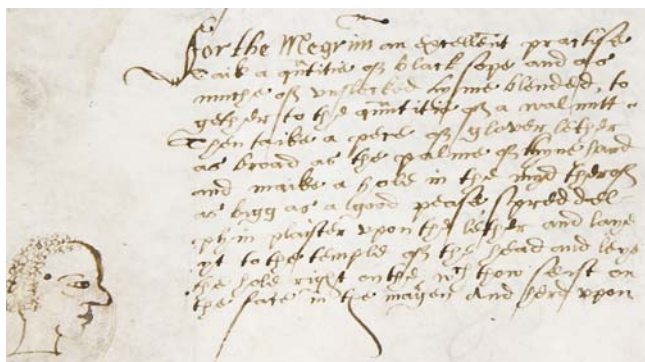 For the Megrim an excellent practise
Taik a qūtitie off black sope and als
muche off unslecked lyme blended, to
gether to the qūntitie off a walnutt
Then taike a pece off glover lether
as broad as the palme off thyne hand
and maike a hole in the myd theroff
as bigg as a good pease spreed
in plaister upon the lether and laye
yt to the temple off the head and leye
the hole right on the wch thow seist on
the face in the mayen And upon